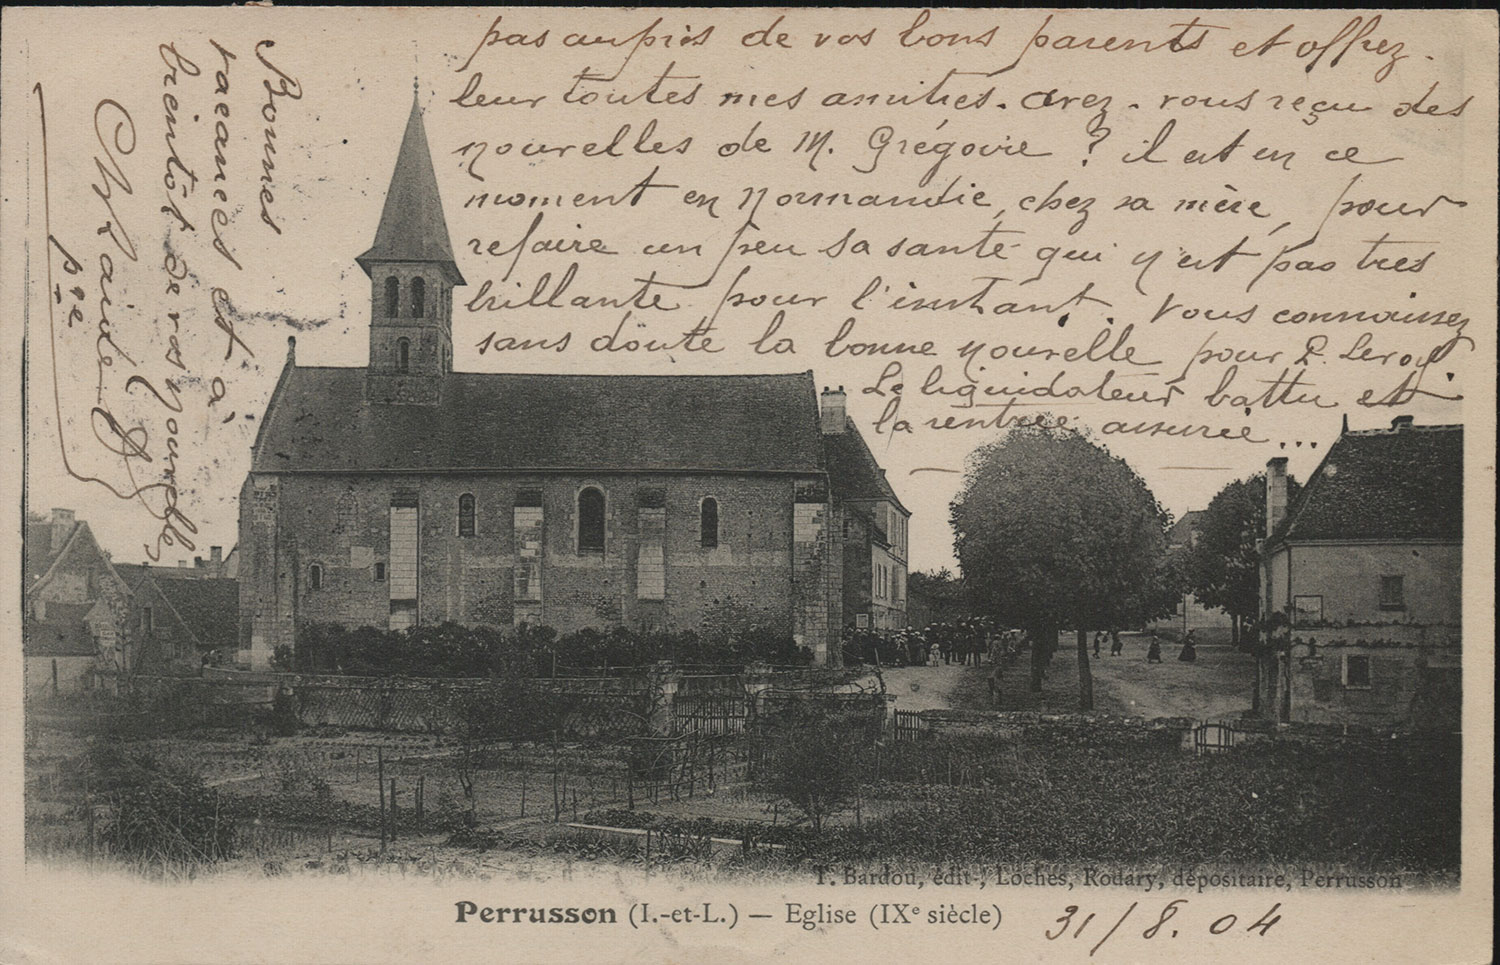 pas auprès de vos bons parents et offrez-
leur toutes mes amitiés. avez-vous reçu des
nouvelles de M. Grégoire ? il est en ce
moment en Normandie, chez sa mère, pour
refaire un peu sa santé qui n'est pas très
brillante pour l'instant. Vous connaissez
sans doute la bonne nouvelle pour P. Leroy.
Le liquidateur battu et
la rentrée assurée...
Bonnes
vacances et à
bientôt de vos nouvelles
p.re
T. Bardou, édit-, Loches, Rodary, dépositaire, Perrusson
Perrusson (I.-et-L.) — Eglise (IXe siècle)
31/8. 04